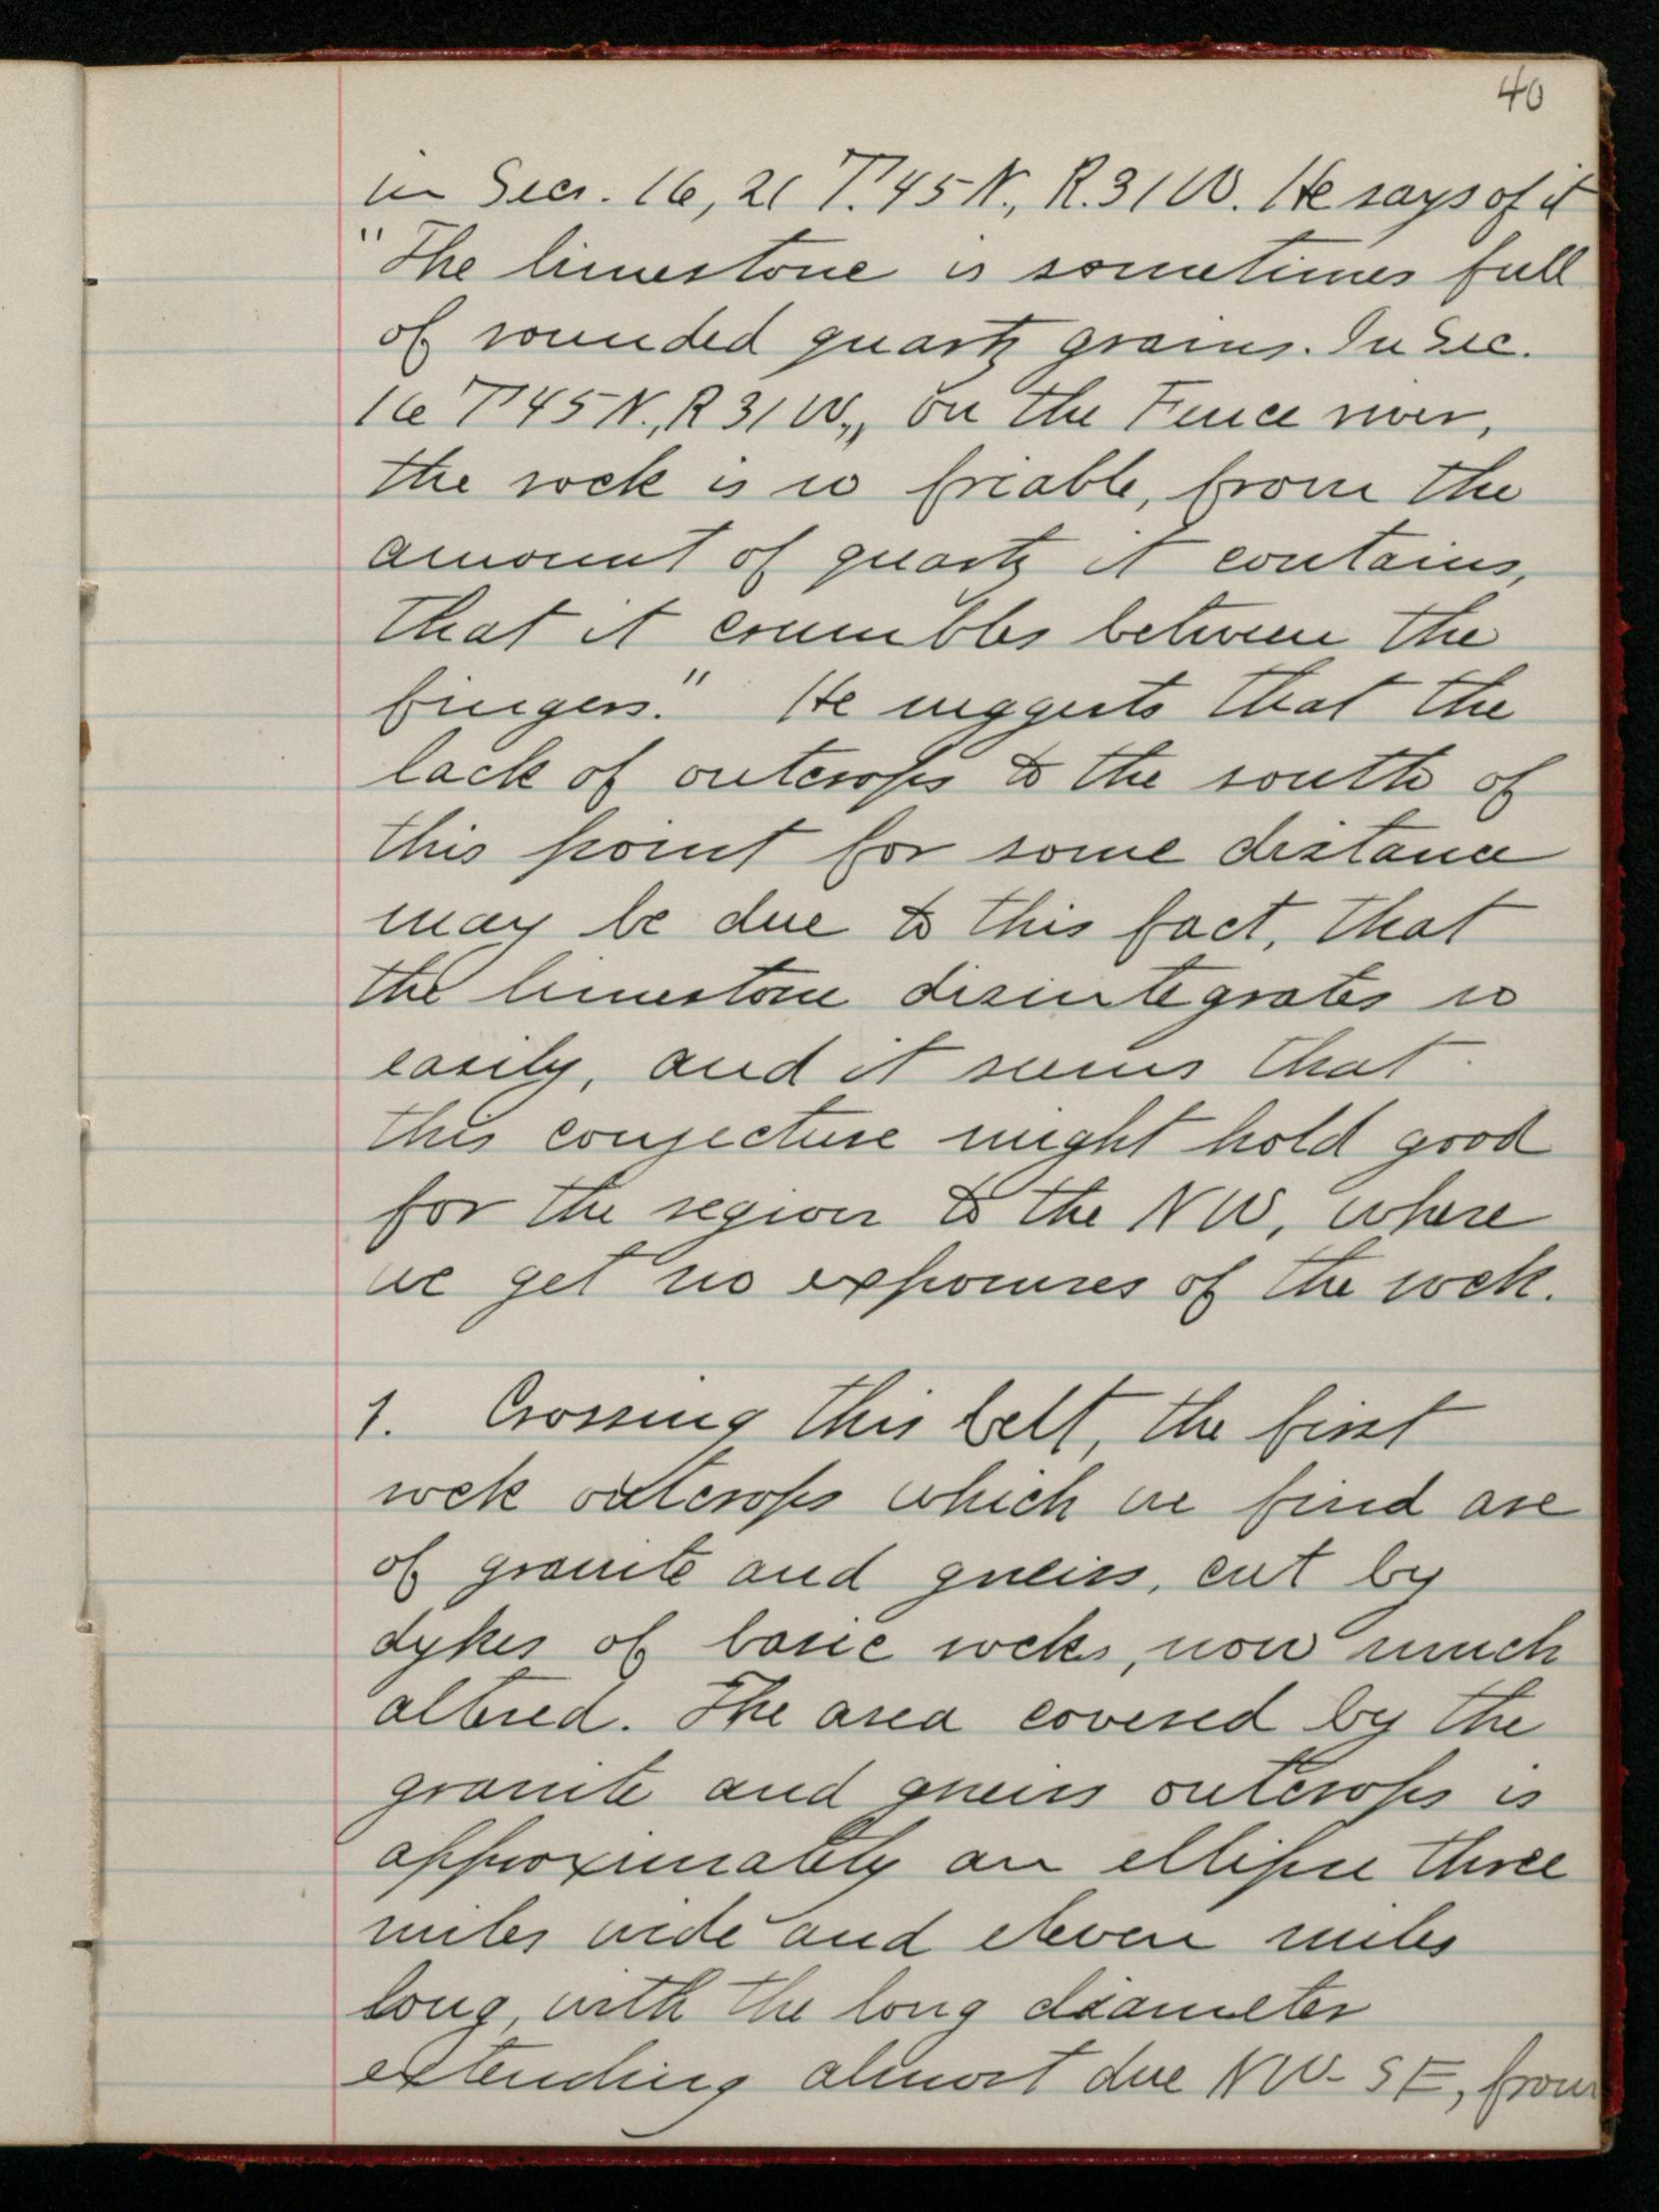 40
in Secs. 16, 21 T.45N., R.31W. He says of it
"The limestone is sometimes full
of rounded quartz grains. In Sec.
16 T45N., R31W,, on the Fence river,
the rock is so friable, from the
amount of quartz it contains,
that it crumbles between the
fingers." He suggests that the
lack of outcrops to the south of
this point for some distance
may be due to this fact, that
the limestone disintegrates so
easily, and it seems that
this conjecture might hold good
for the region to the NW, where
we get no exposures of the rock.
1. Crossing this belt, the first
rock outcrops which we find are
of granite and gneiss, cut by
dykes of basic rocks, now much
altered. The area covered by the
granite and gneiss outcrops is
approximately an ellipse three
miles wide and eleven miles
long, with the long diameter
extending almost due NW-SE, from